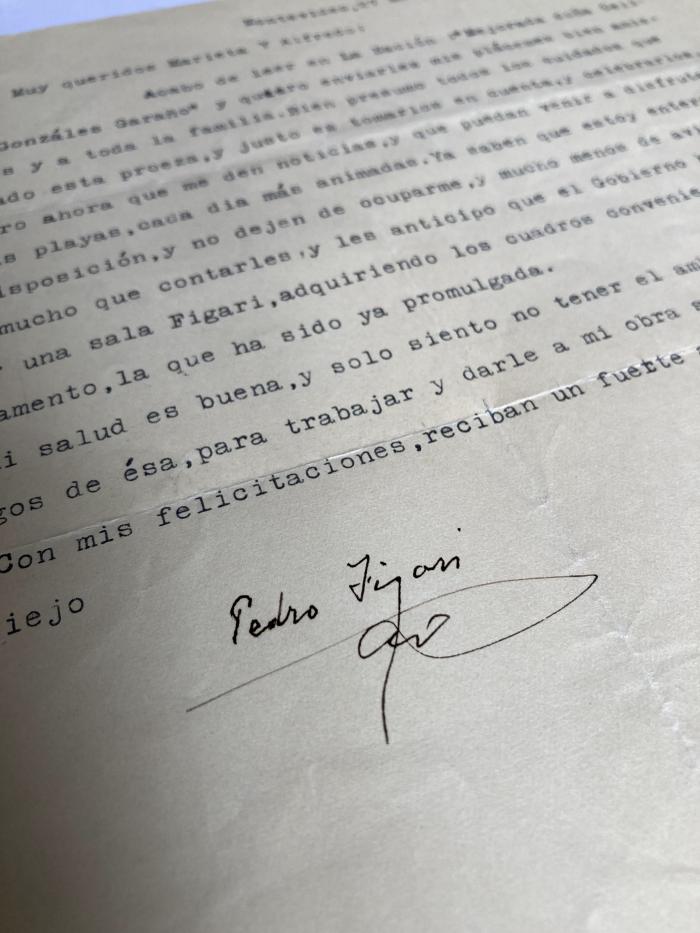 Montevideo,
Muy queridos Marieta y Alfredo:
Acabo de leer en La Nación "Mejorada
Gonzáles Garaño" y quiero enviarles mis plácemes bien
s y a toda la familia.Bien presumo todos los cuidados que
ado esta proeza,y justo es tomarlos en cuenta,y celebrarlos
ro ahora que me den noticias,y que puedan venir a disfrut
s playas,cada día más animadas.Ya saben que estoy ente
isposición,y no dejen de ocuparme,y mucho menos de av
mucho que contarles,y les anticipo que el Gobierno
una sala Figari,adquiriendo los cuadros conveni
amento,la que ha sido ya promulgada.
i salud es buena,y solo siento no tener el am
gos de ésa,para trabajar y darle a mi obra
Con mis felicitaciones,reciban un fuerte
iejo
Pedro Figari